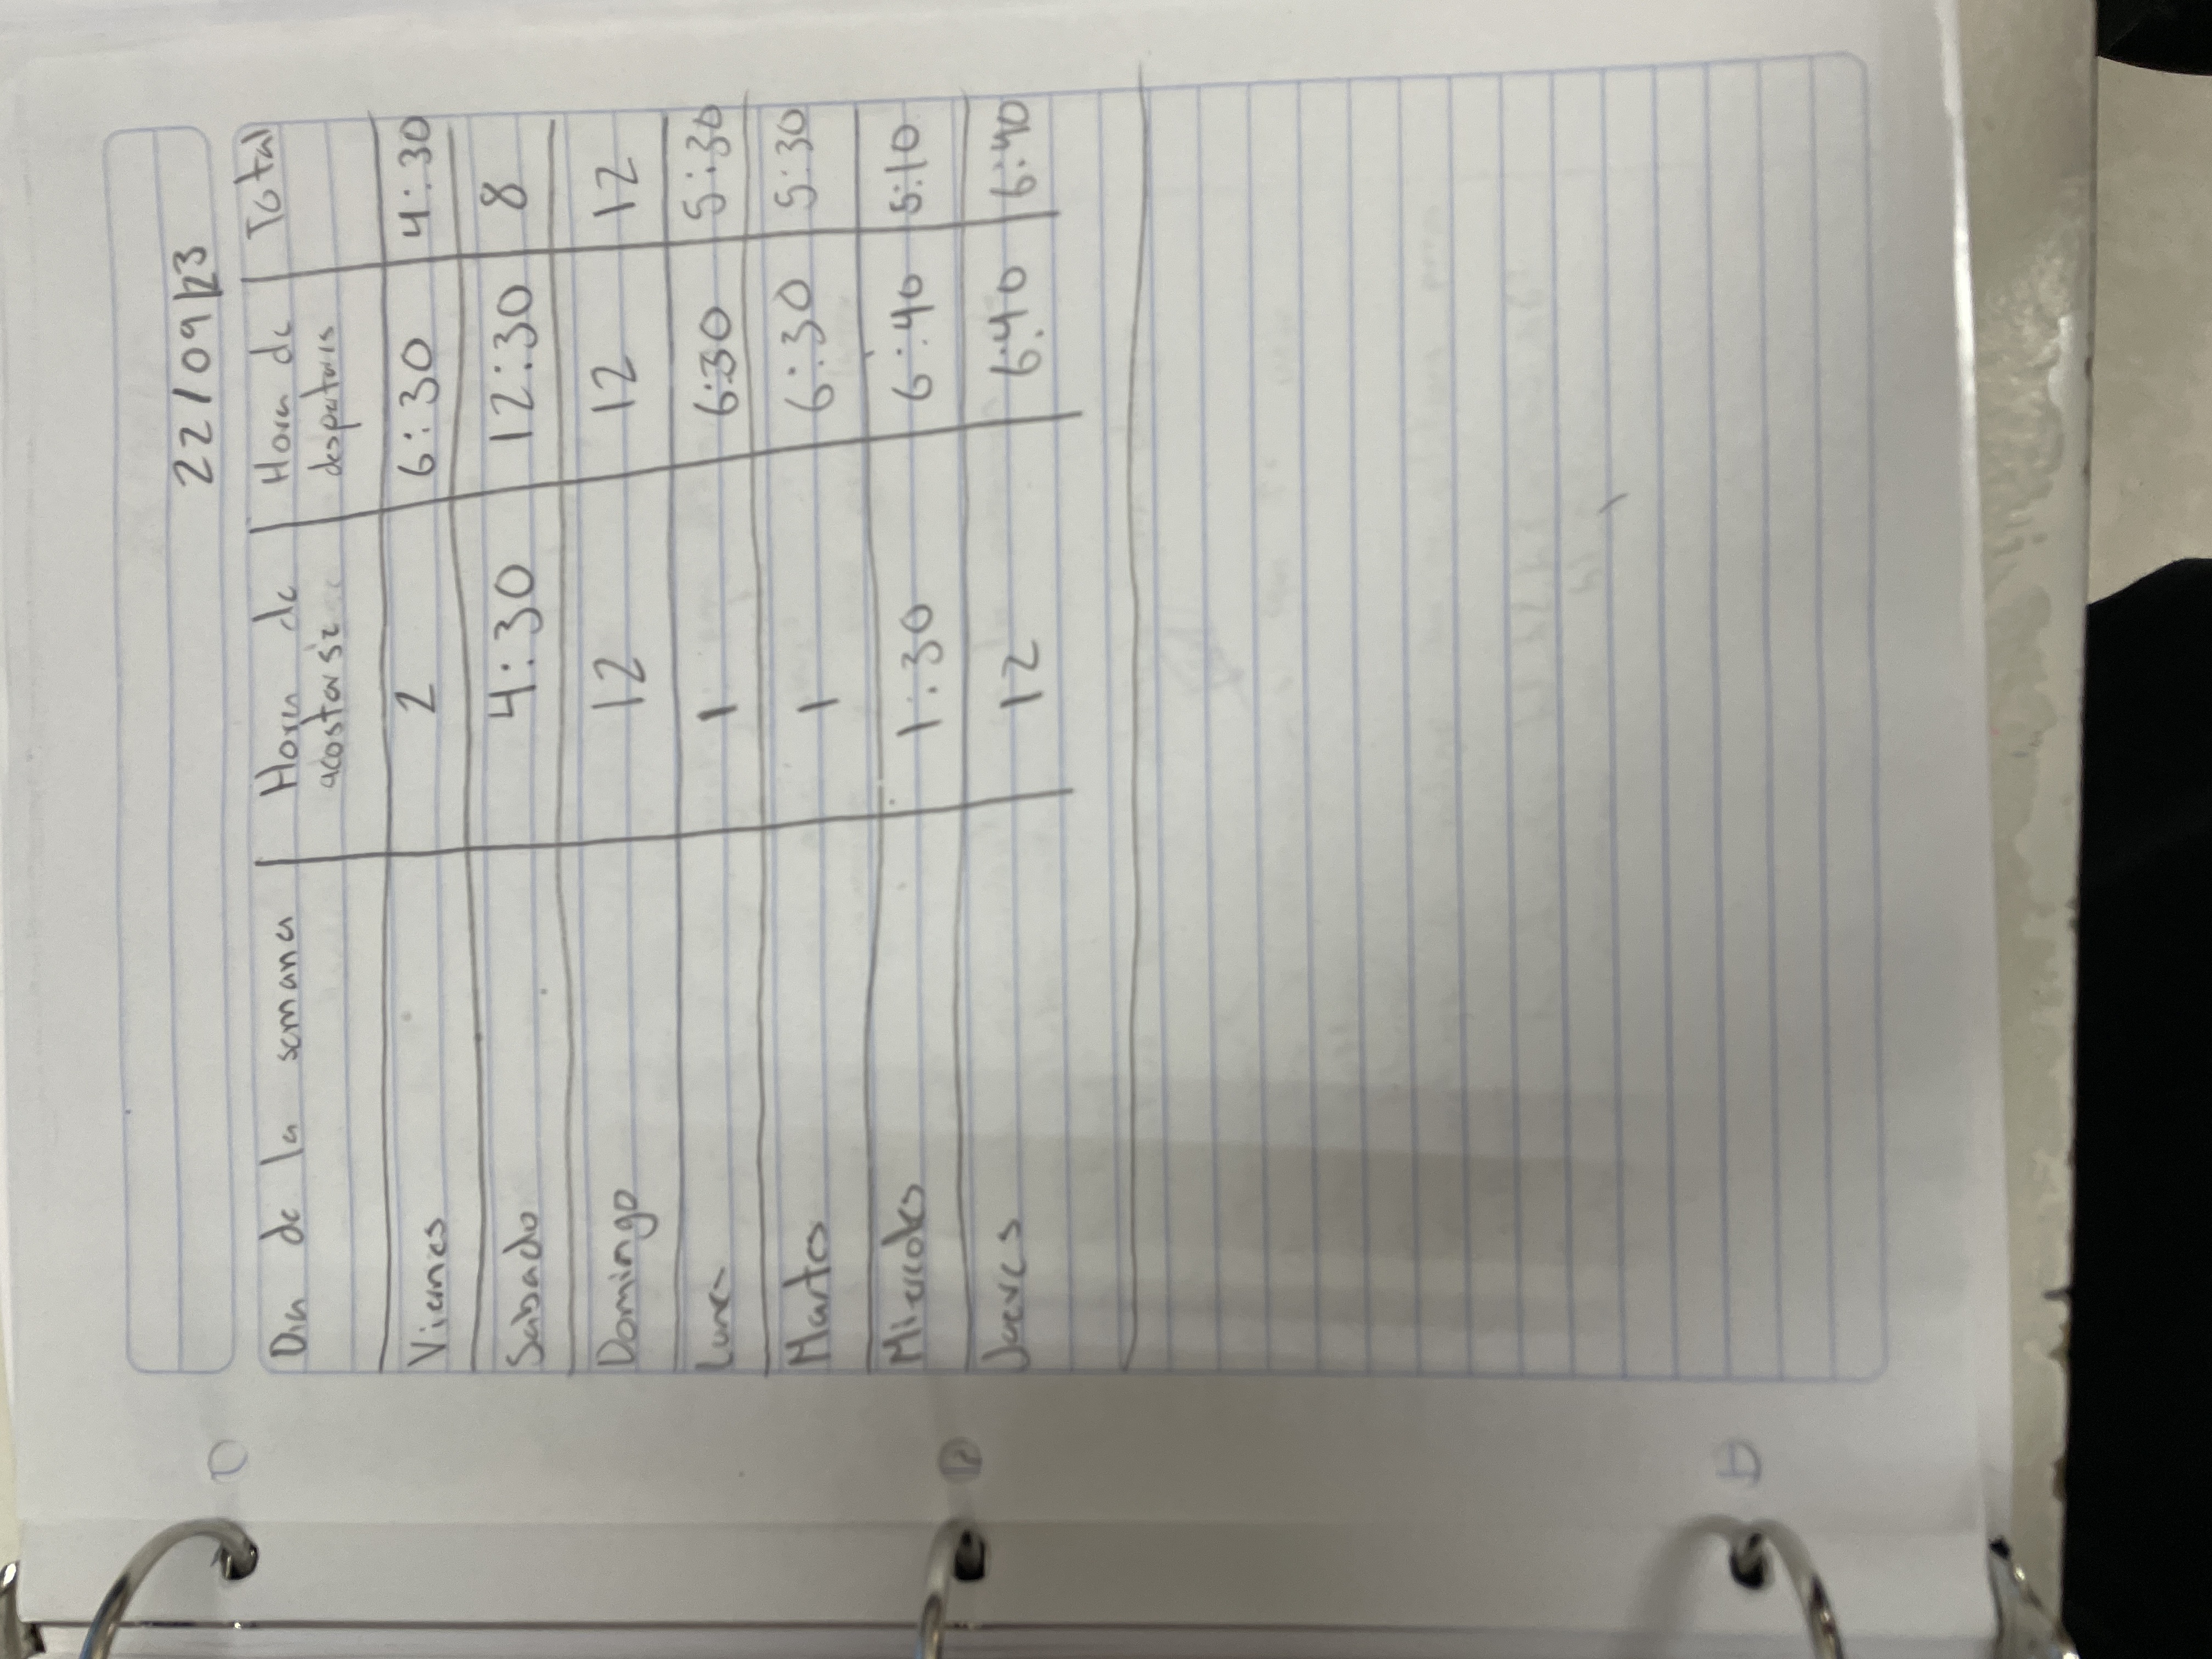 22/09/23
Dia de la semana Hora de acostarse Hora de despetars Total
Viernes 2 6:30 4:30
Sabado 4:30 12:30 8
Domingo 12 12 12
Lunes 1 6:30 5:30
Martes 1 6:30 5:30
Miercoles 1:30 6:40 5:10
Jueves 12 6:40 6:40